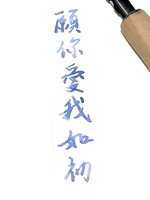 願你愛我如初